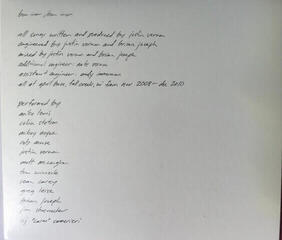 bon iver, bon iver
all songs written and produced by justin vernon
engineered by justin vernon and brian joseph
mixed by justin vernon and brian joseph
additional engineer: nate vernon
assistant engineer: andy
all at april base, fall creek, wi from nov 2008 - dec 2010
performed by
mike lewis
colin stetson
mikey noyce
rob moose
justin vernon
matt mccaughan
tom wincek
sean carey
greg leisz
brian joseph
jim schoenecker
cj "carm" camerieri